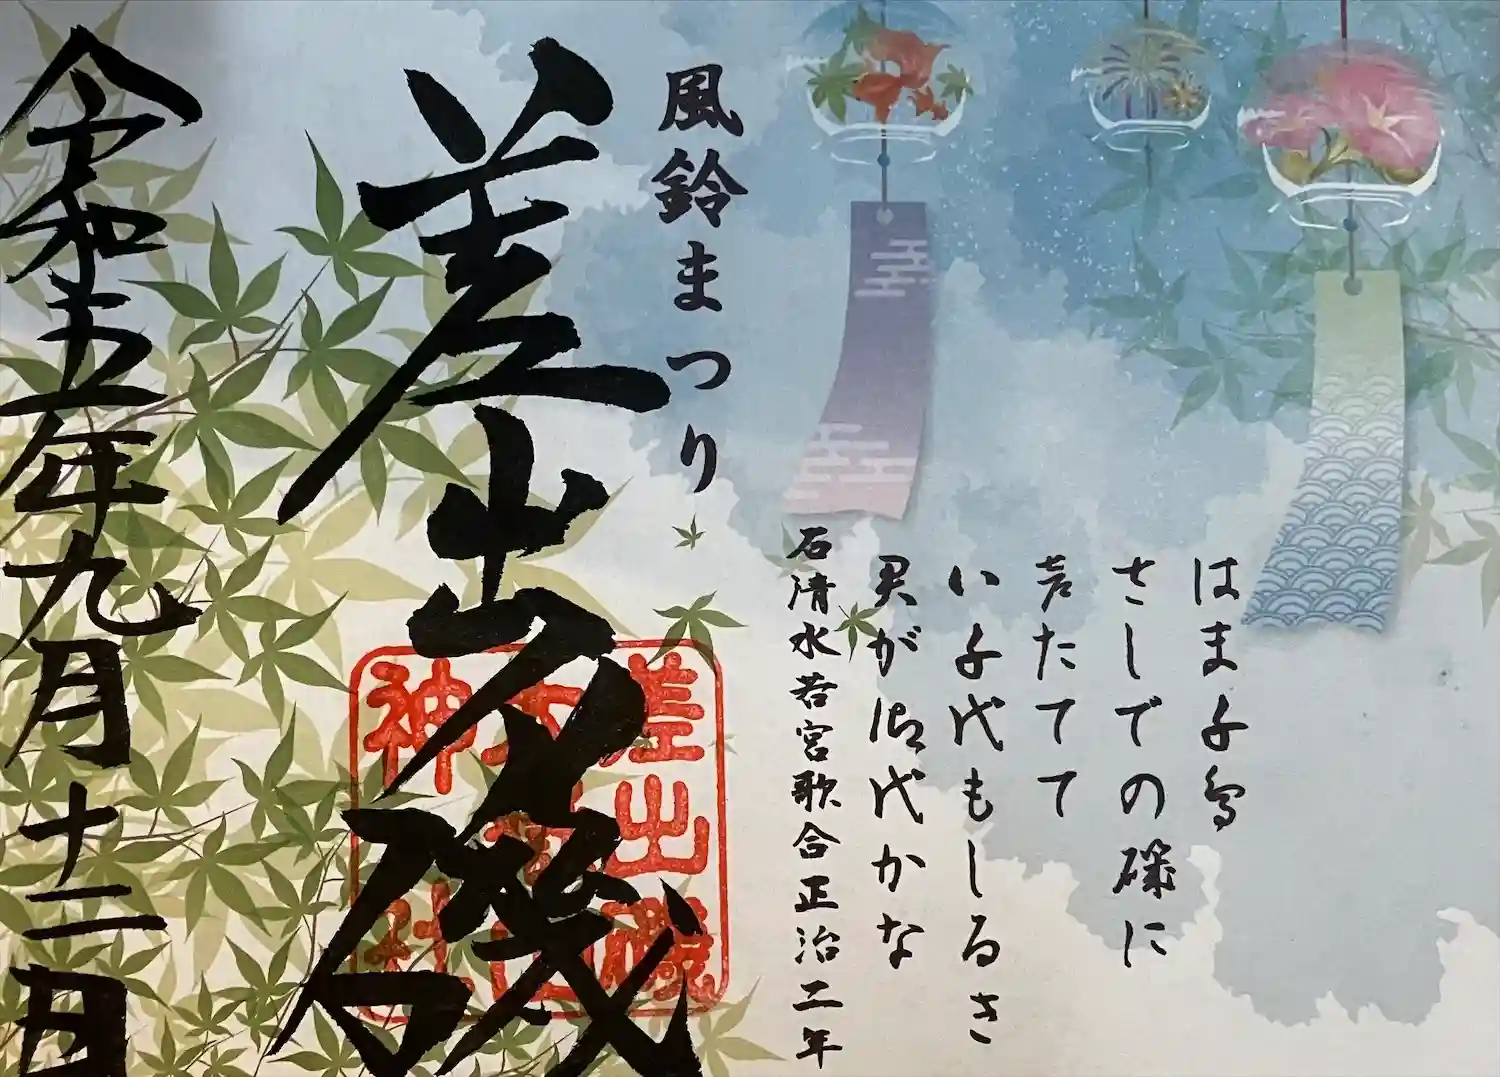 はま千鳥
さしでの磯に
声たてて
八千代もしるき
君が御代かな
石清水若宮歌合正治二年
風鈴まつり
差出乃磯
差出磯
神社
令和五年九月十二日